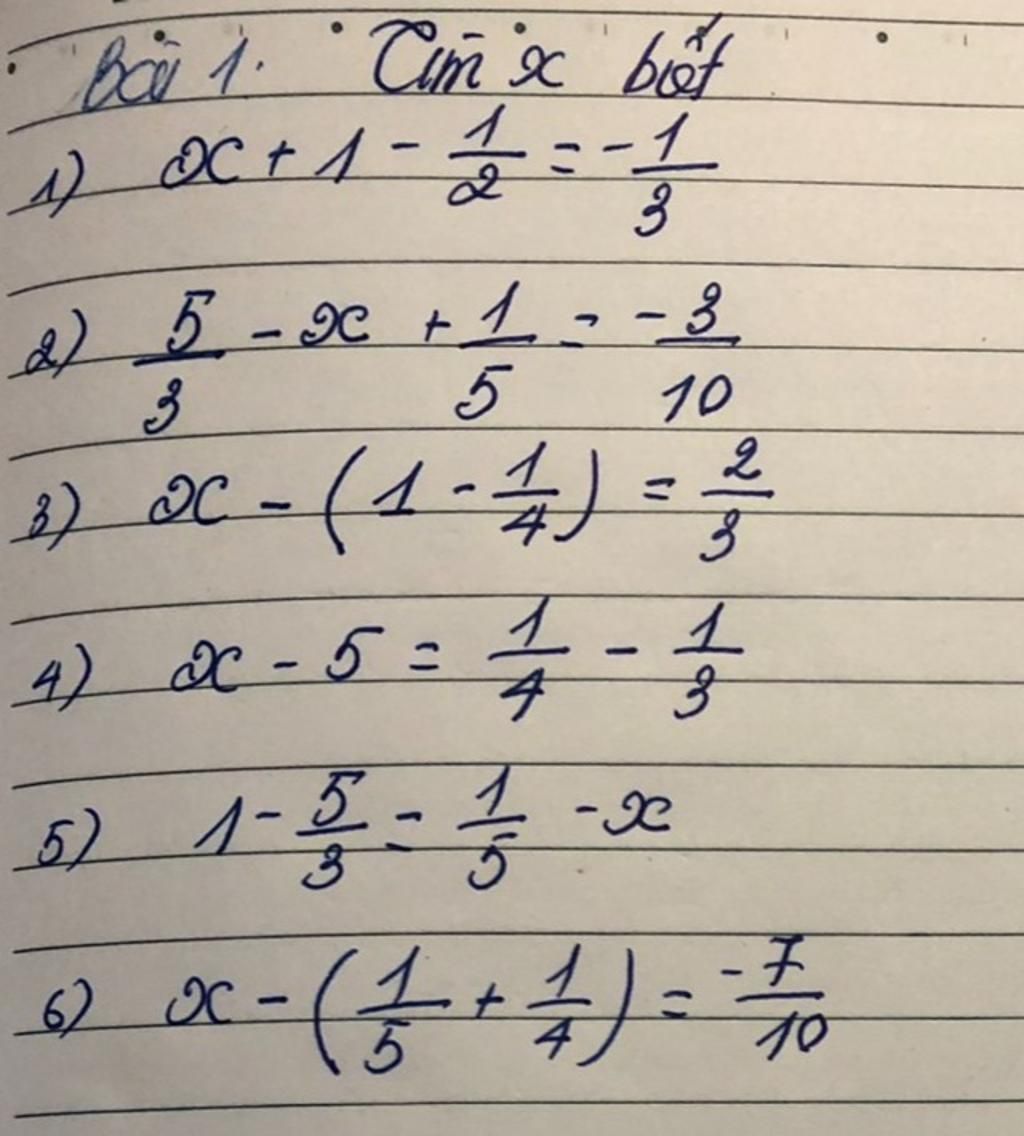 Bài 1. Tìm x biết
1) x + 1 - 1/2 = -1/3
2) 5/3 - x + 1/5 = -3/10
3) x - (1 - 1/4) = 2/3
4) x - 5 = 1/4 - 1/3
5) 1 - 5/3 = 1/5 - x
6) x - (1/5 + 1/4) = -7/10